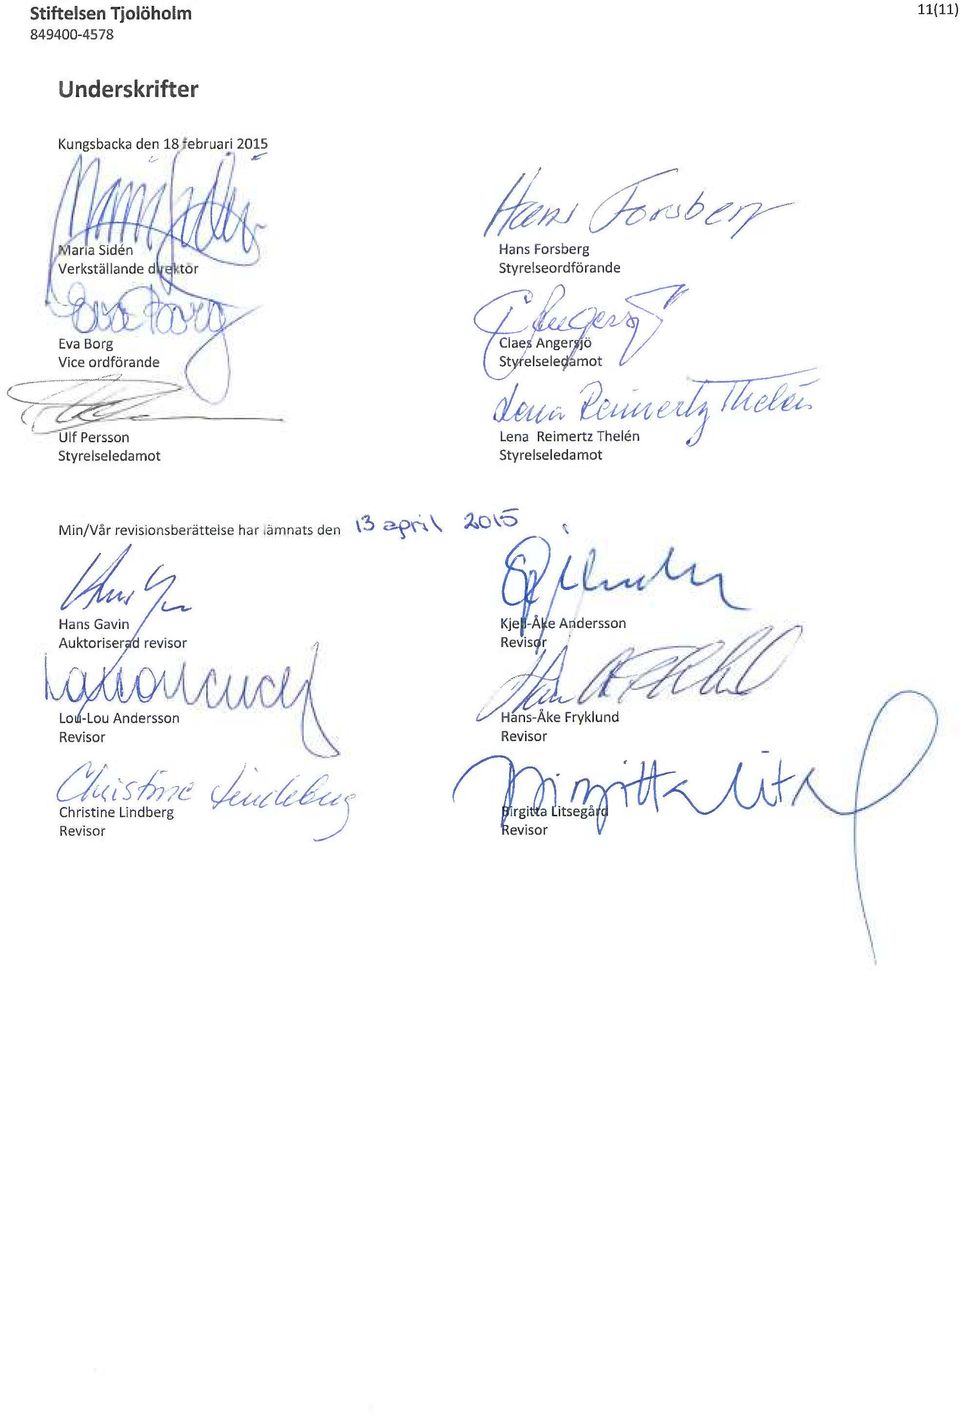 Stiftelsen Tjolöholm
11(11)
849400-4578
Underskrifter
Kungsbacka den 18 februari 2015
Hans Forsberg
Maria Sidén
Verkställande direktör
Hans Forsberg
Styrelseordförande
Eva Borg
Eva Borg
Vice ordförande
Claes Angersjö
Styrelseledamot
Lena Reimertz Thelén
Ulf Persson
Styrelseledamot
Lena Reimertz Thelén
Styrelseledamot
Min/Vår revisionsberättelse har lämnats den 13 april 2015
Hans Gavin
Auktoriserad revisor
Kjell-Åke Andersson
Revisor
Lou-Lou Andersson
Revisor
Hans-Åke Fryklund
Revisor
Christine Lindberg
Christine Lindberg
Revisor
Birgitta
Birgitta Litsegård
Revisor